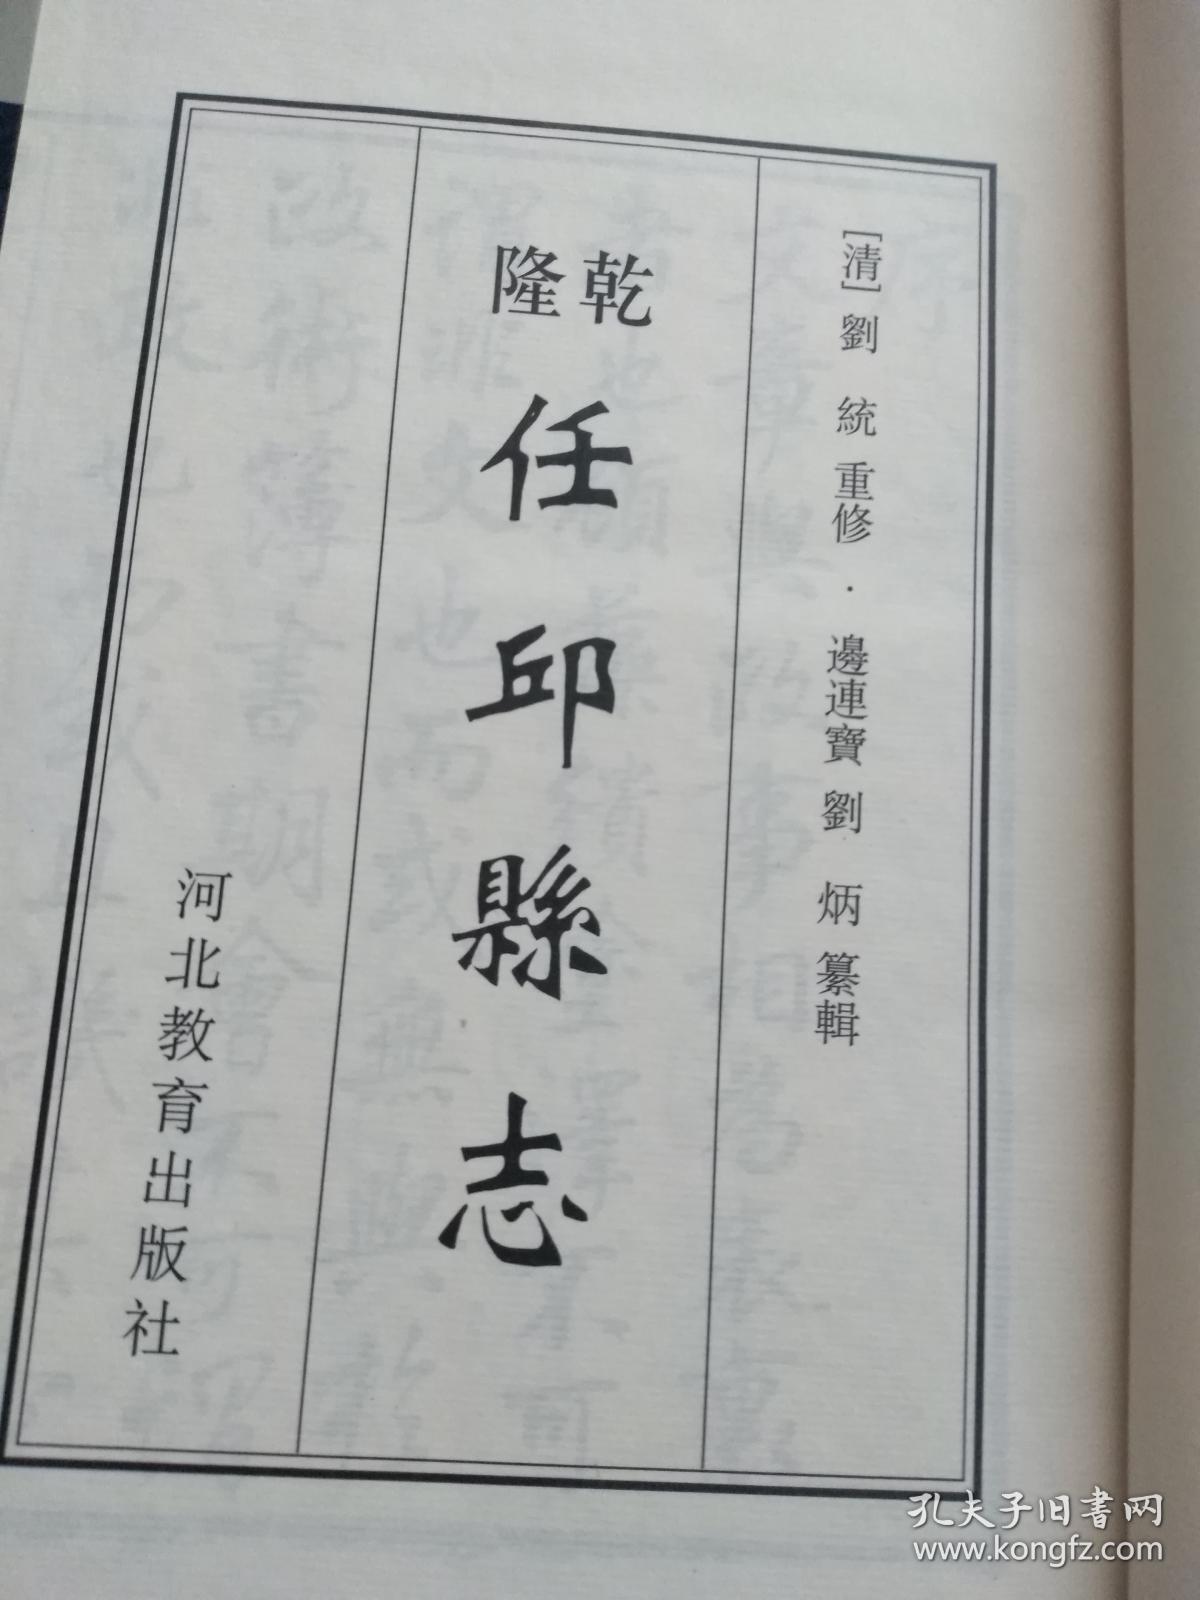 ［清］劉　統 重修 · 邊連寶 劉　炳 纂輯
乾隆
任邱縣志
河北教育出版社
孔夫子旧书网
www.kongfz.com